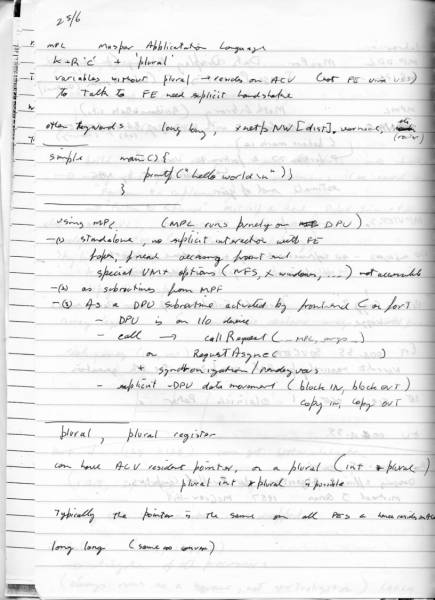 25/6
MPL Maspar Application Language
K+R 'C' + 'plural'
variables without plural → resides on ACU (not FE
To talk to FE need explicit handshake
other keywords long long, xnetpNW[dist].
simple main() {
printf("hello world\n")}
}
using MPL (MPL runs purely on DPU)
-(1) standalone, no explicit interaction with FE
fopen, fread accessing front end
special VMX options (NFS, X windows, ...) not accessible
-(2) as subroutines from MPF
-(3) As a DPU subroutine activated by front end C or fort
- DPU is an I/O device
- call → callRequest(-MPL, args...)
or RequestAsync( )
+ synchronization/rendezvous
- explicit -DPU data movement (blockIN, blockOUT)
copy in, copy OUT
plural, plural register
can have ACU resident pointer, or a plural (int *plural)
plural int *plural is possible
Typically the pointer is the same on all PEs & hence resides
long long (same as